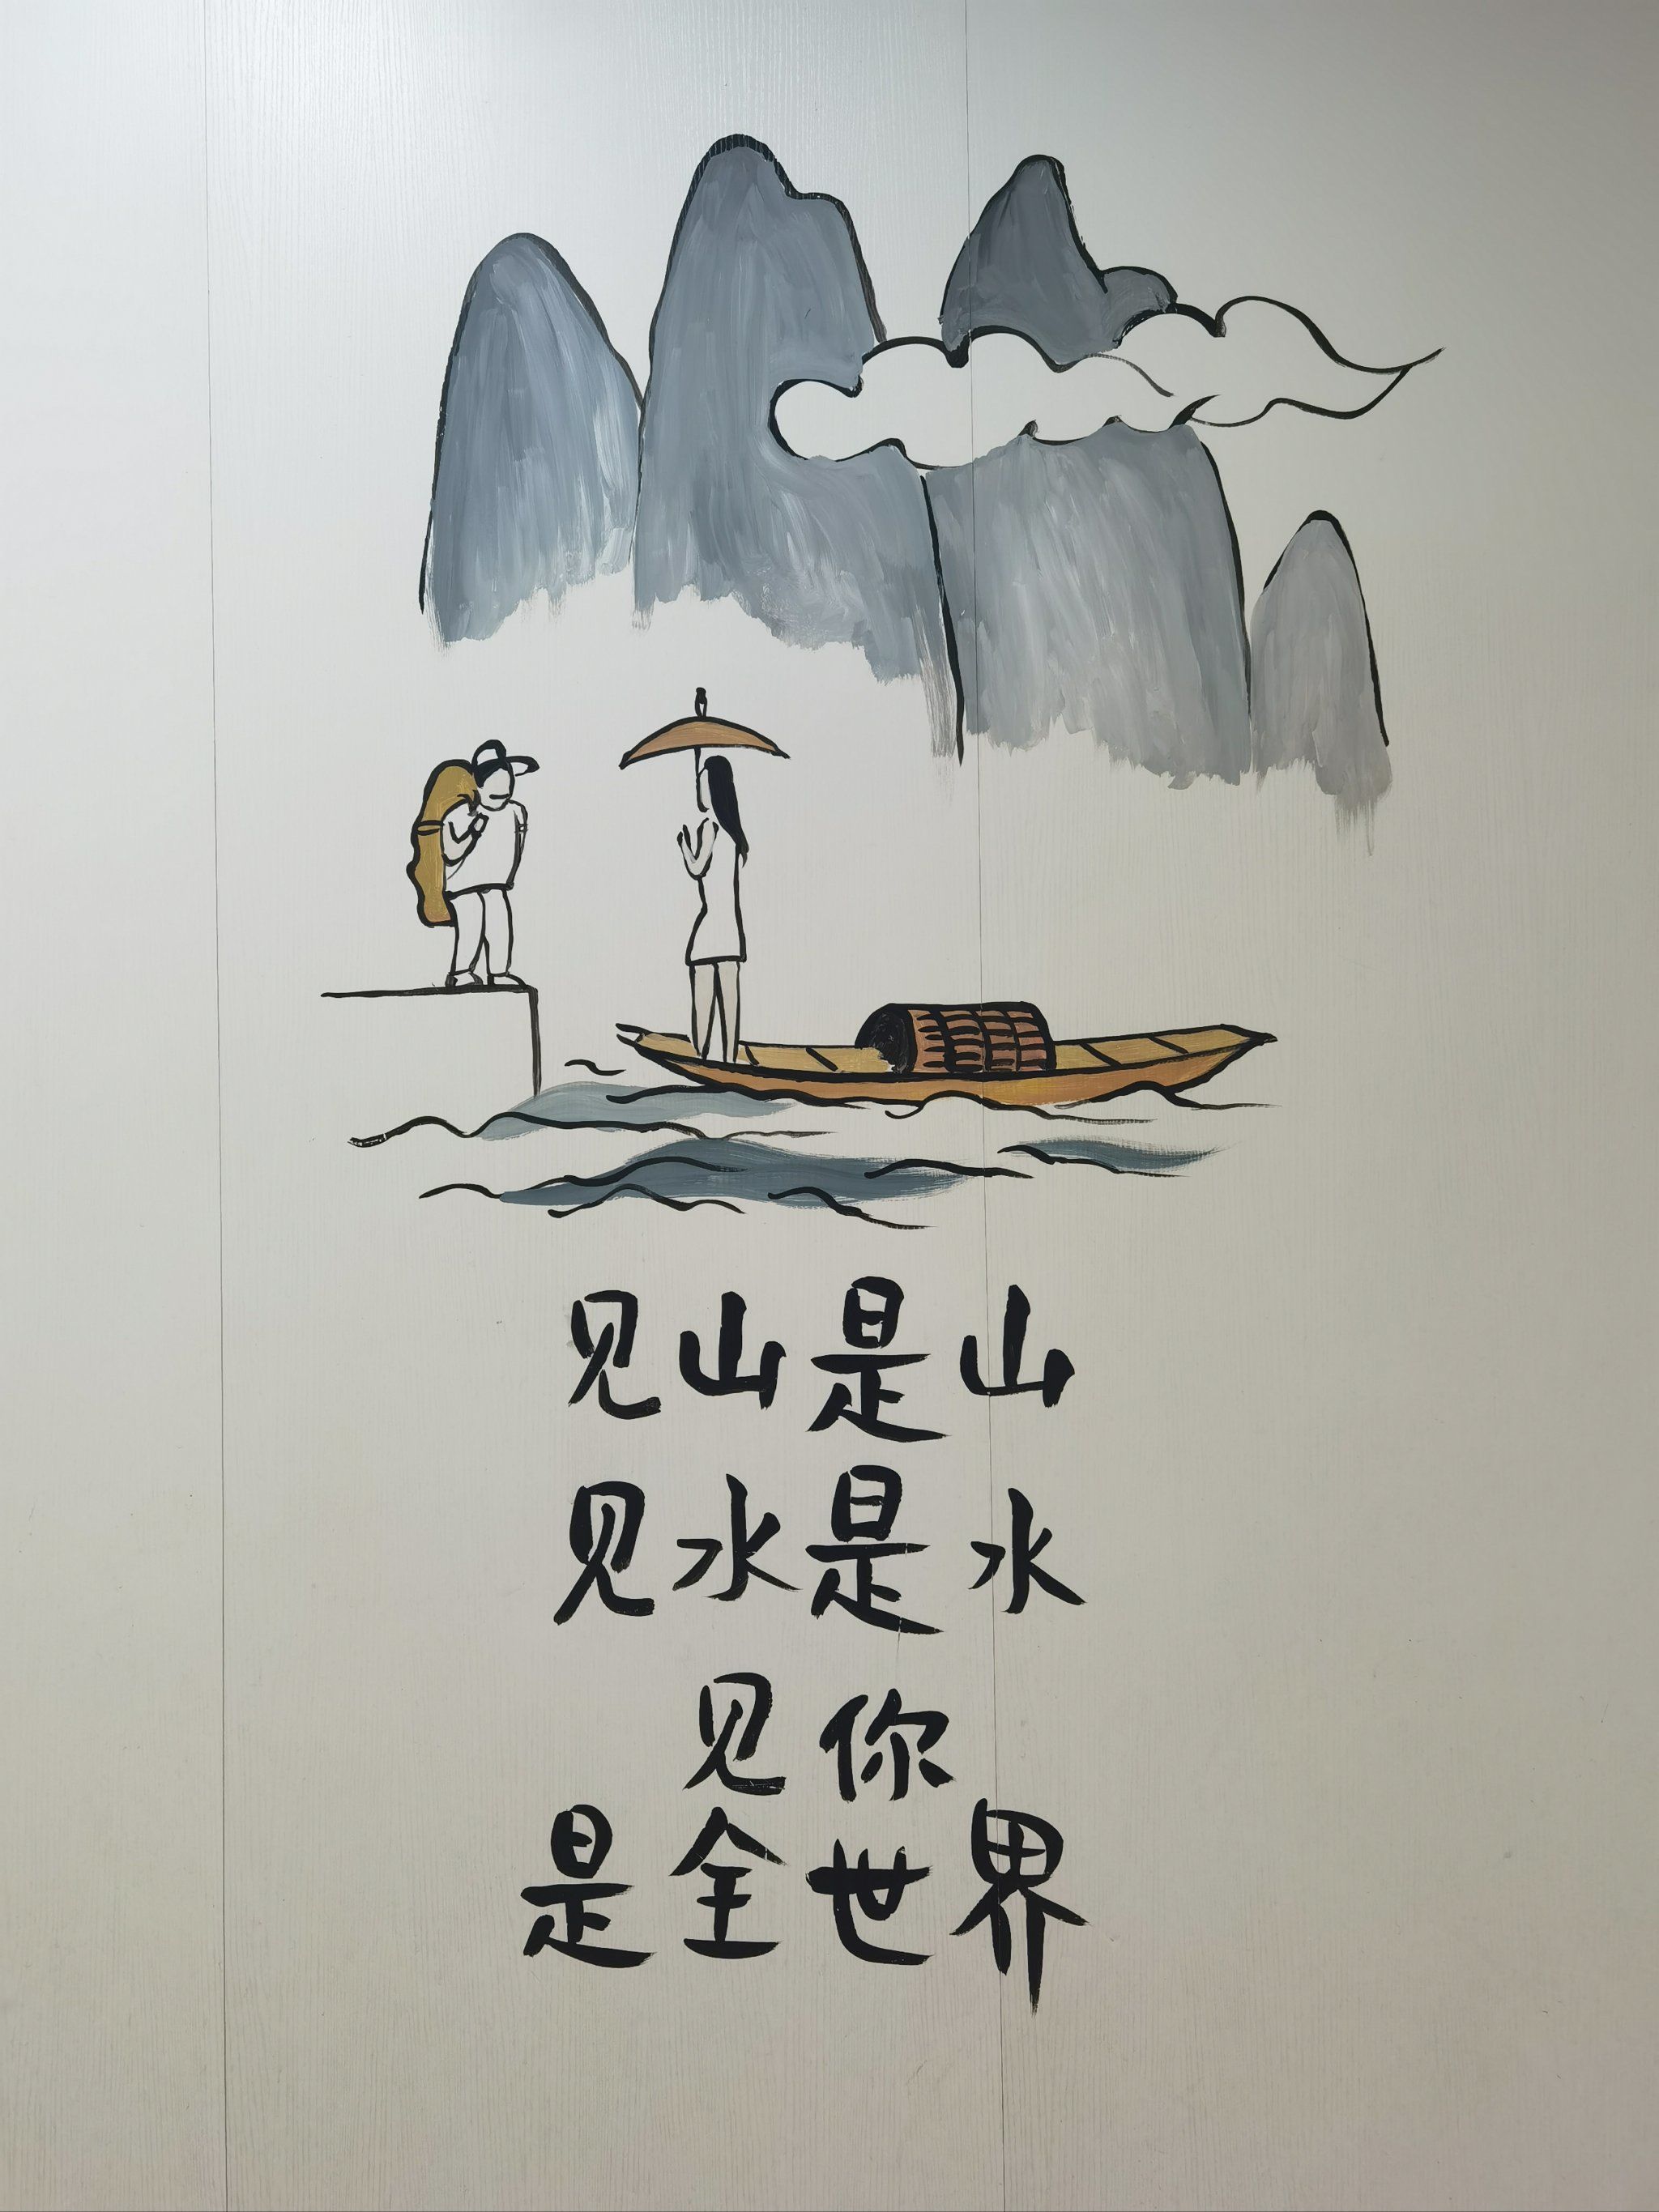 见山是山
见水是水
见你
是全世界